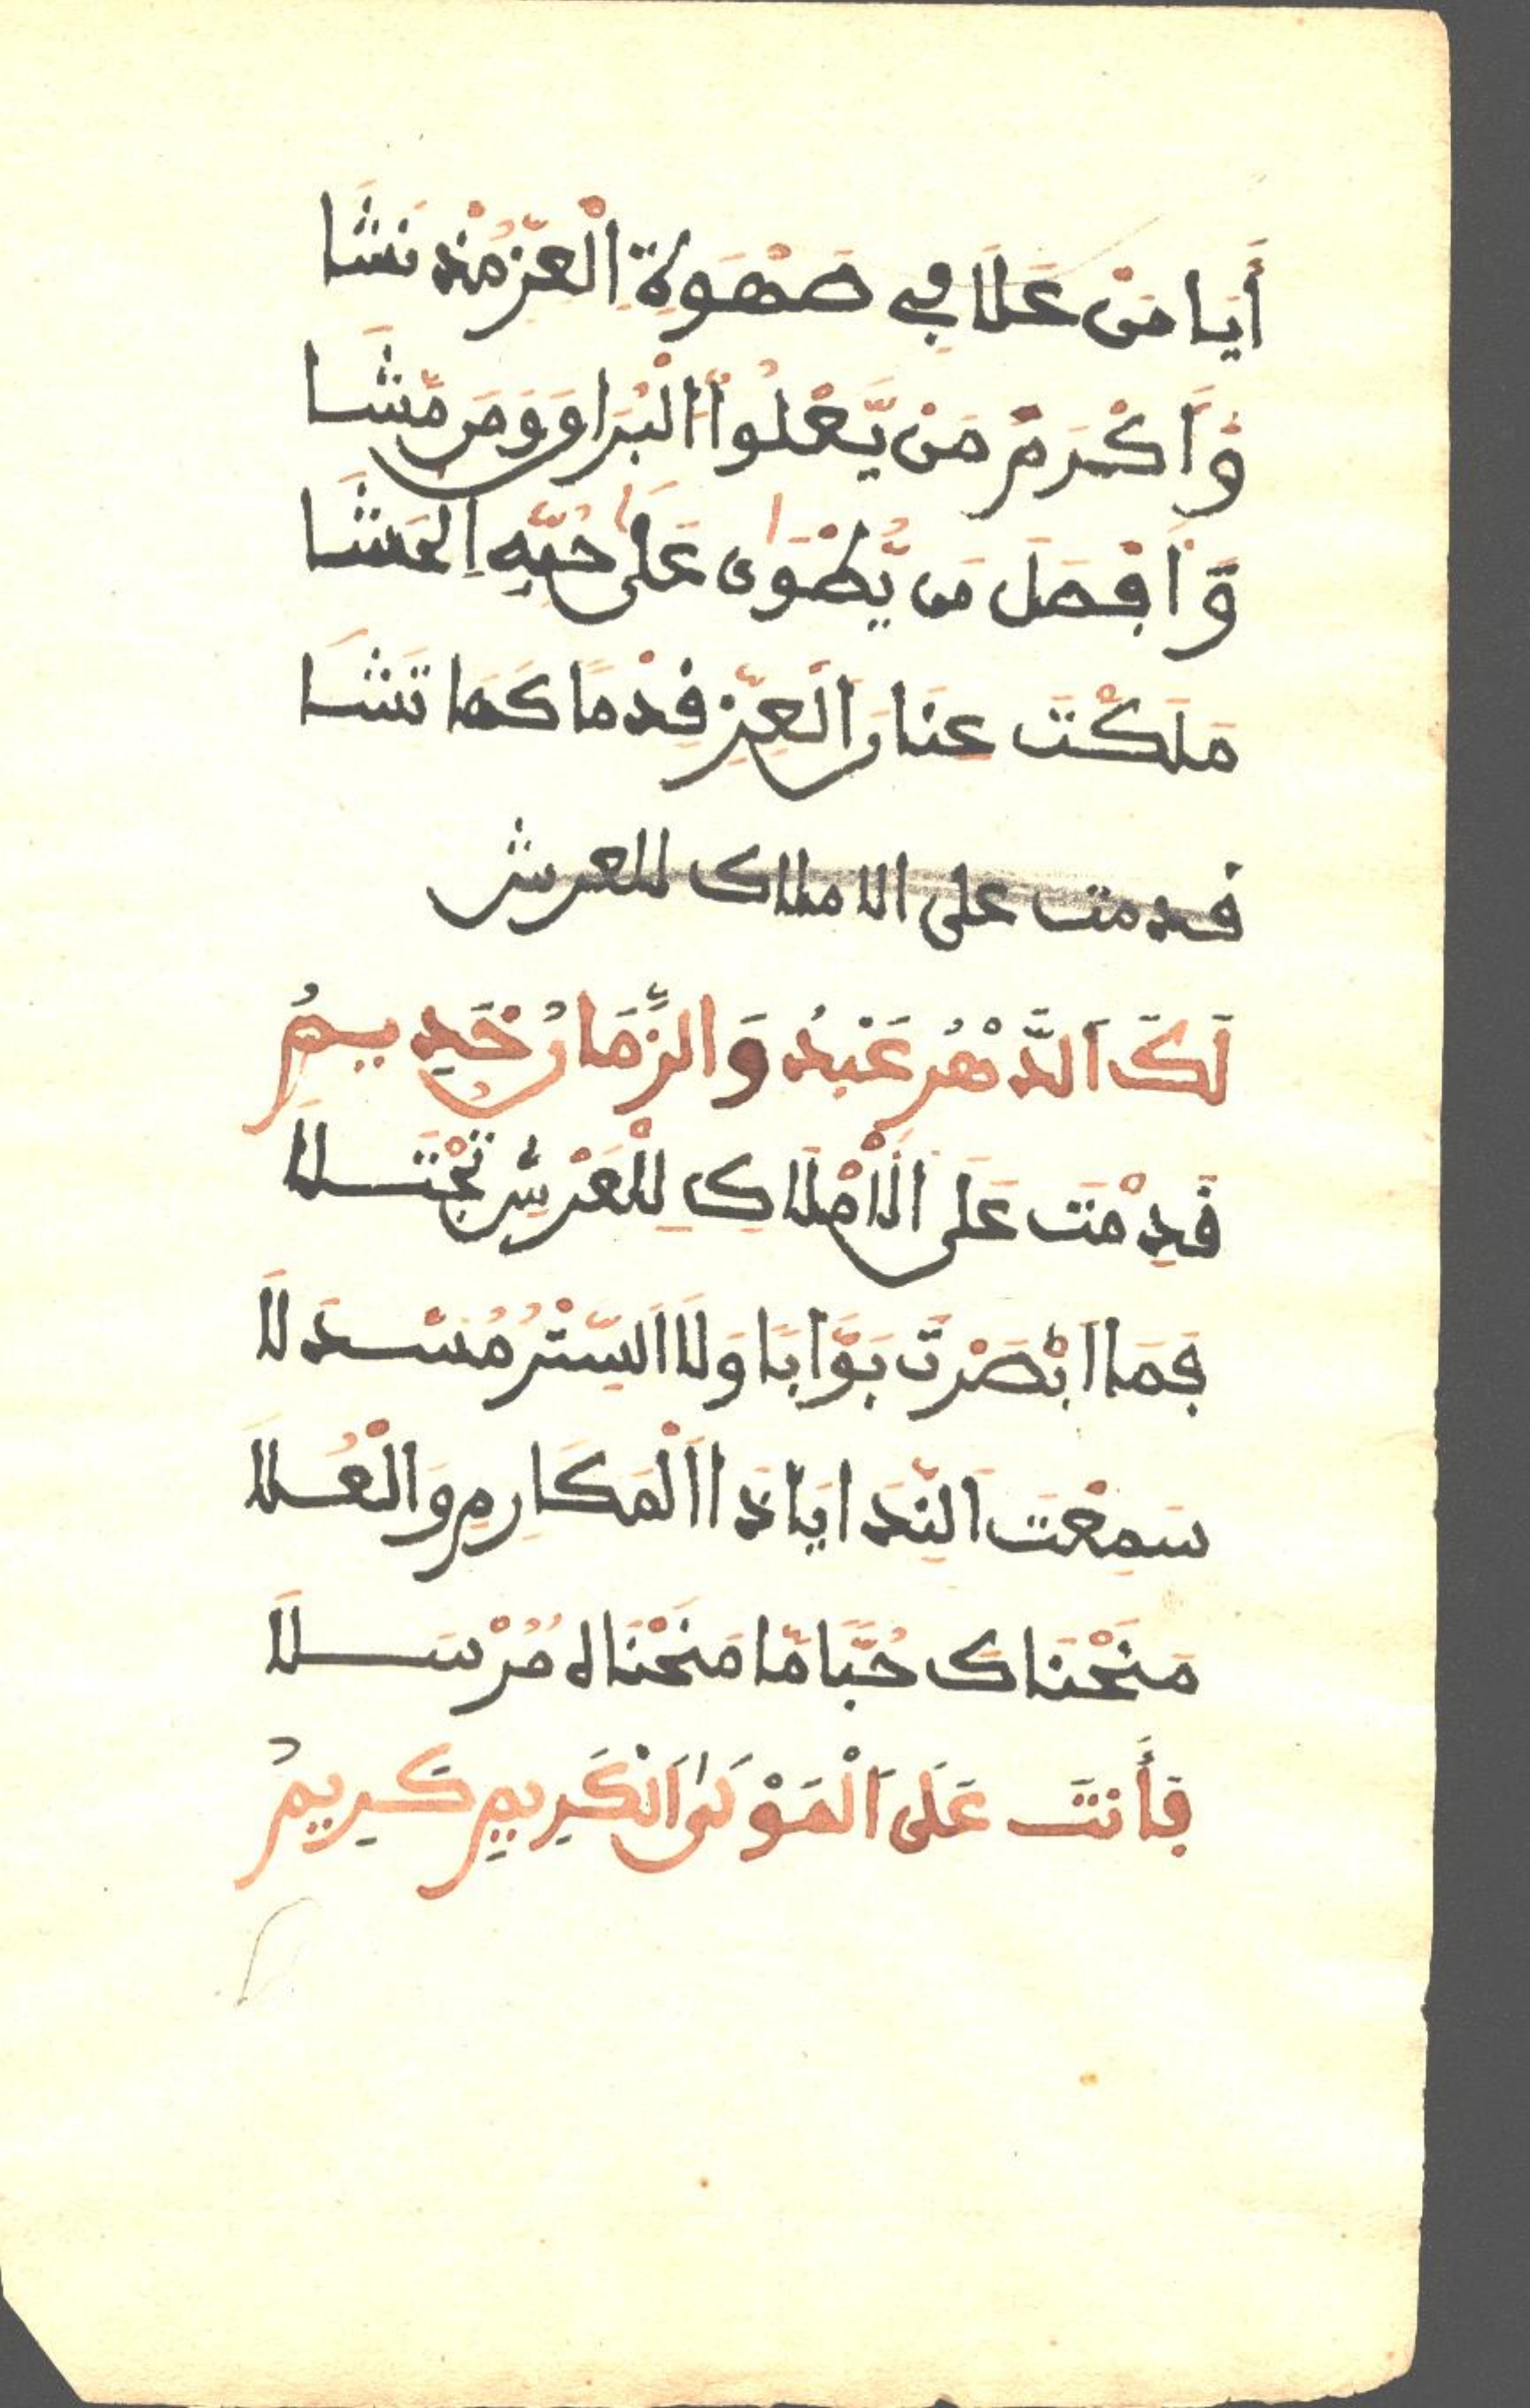 أَيَا مَنْ عَلَا فِي صَهْوَةِ الْعِزِّ مُنْذ نَشَا
وَّأَكْرَمَ مَنْ يَّعْلُواْ الْبُرَاقَ وَمَن مَّشَا
وَّأَفْضَلَ مَن يُّطْوَىٰ عَلَىٰ حُبِّهِ اِلحَشَا
مَلَكْتَ عِنَانَ اَلْعِزِّ قِدْمًا كَمَا تَشَا
قدمت على الاملاك للعرش
لَكَ اَلدَّهْرُ عَبْدُ وَالزَّمَانُ خَدِيمُ
قَدِمْتَ عَلَى الَامْلَاكِ لِلْعَرْشِ تُجْتَلَا
فَمَا ابْصَرْتَ بَوَّابَا وَلَا اَلسِّتْرُ مُسْدَلَا
سَمِعْتَ اَلنِّدَا يَا ذَا اَلْمَكَارِمِ وَالْعُلَا
مَنَحْنَاكَ حُبًّا مَّا مَنَحْنَاه مُرْسَلَا
فَأَنتَ عَلَى اَلْمَوْلَى اَلْكَرِيمِ كَرِيمُ